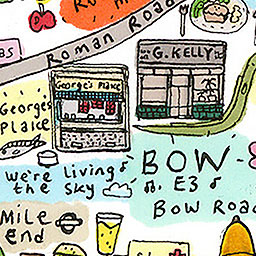 Roman Road
G. KELLY
George's Plaice
George's
Plaice
We're Living
the Sky
BOW
E3
Bow Road
Mile
End